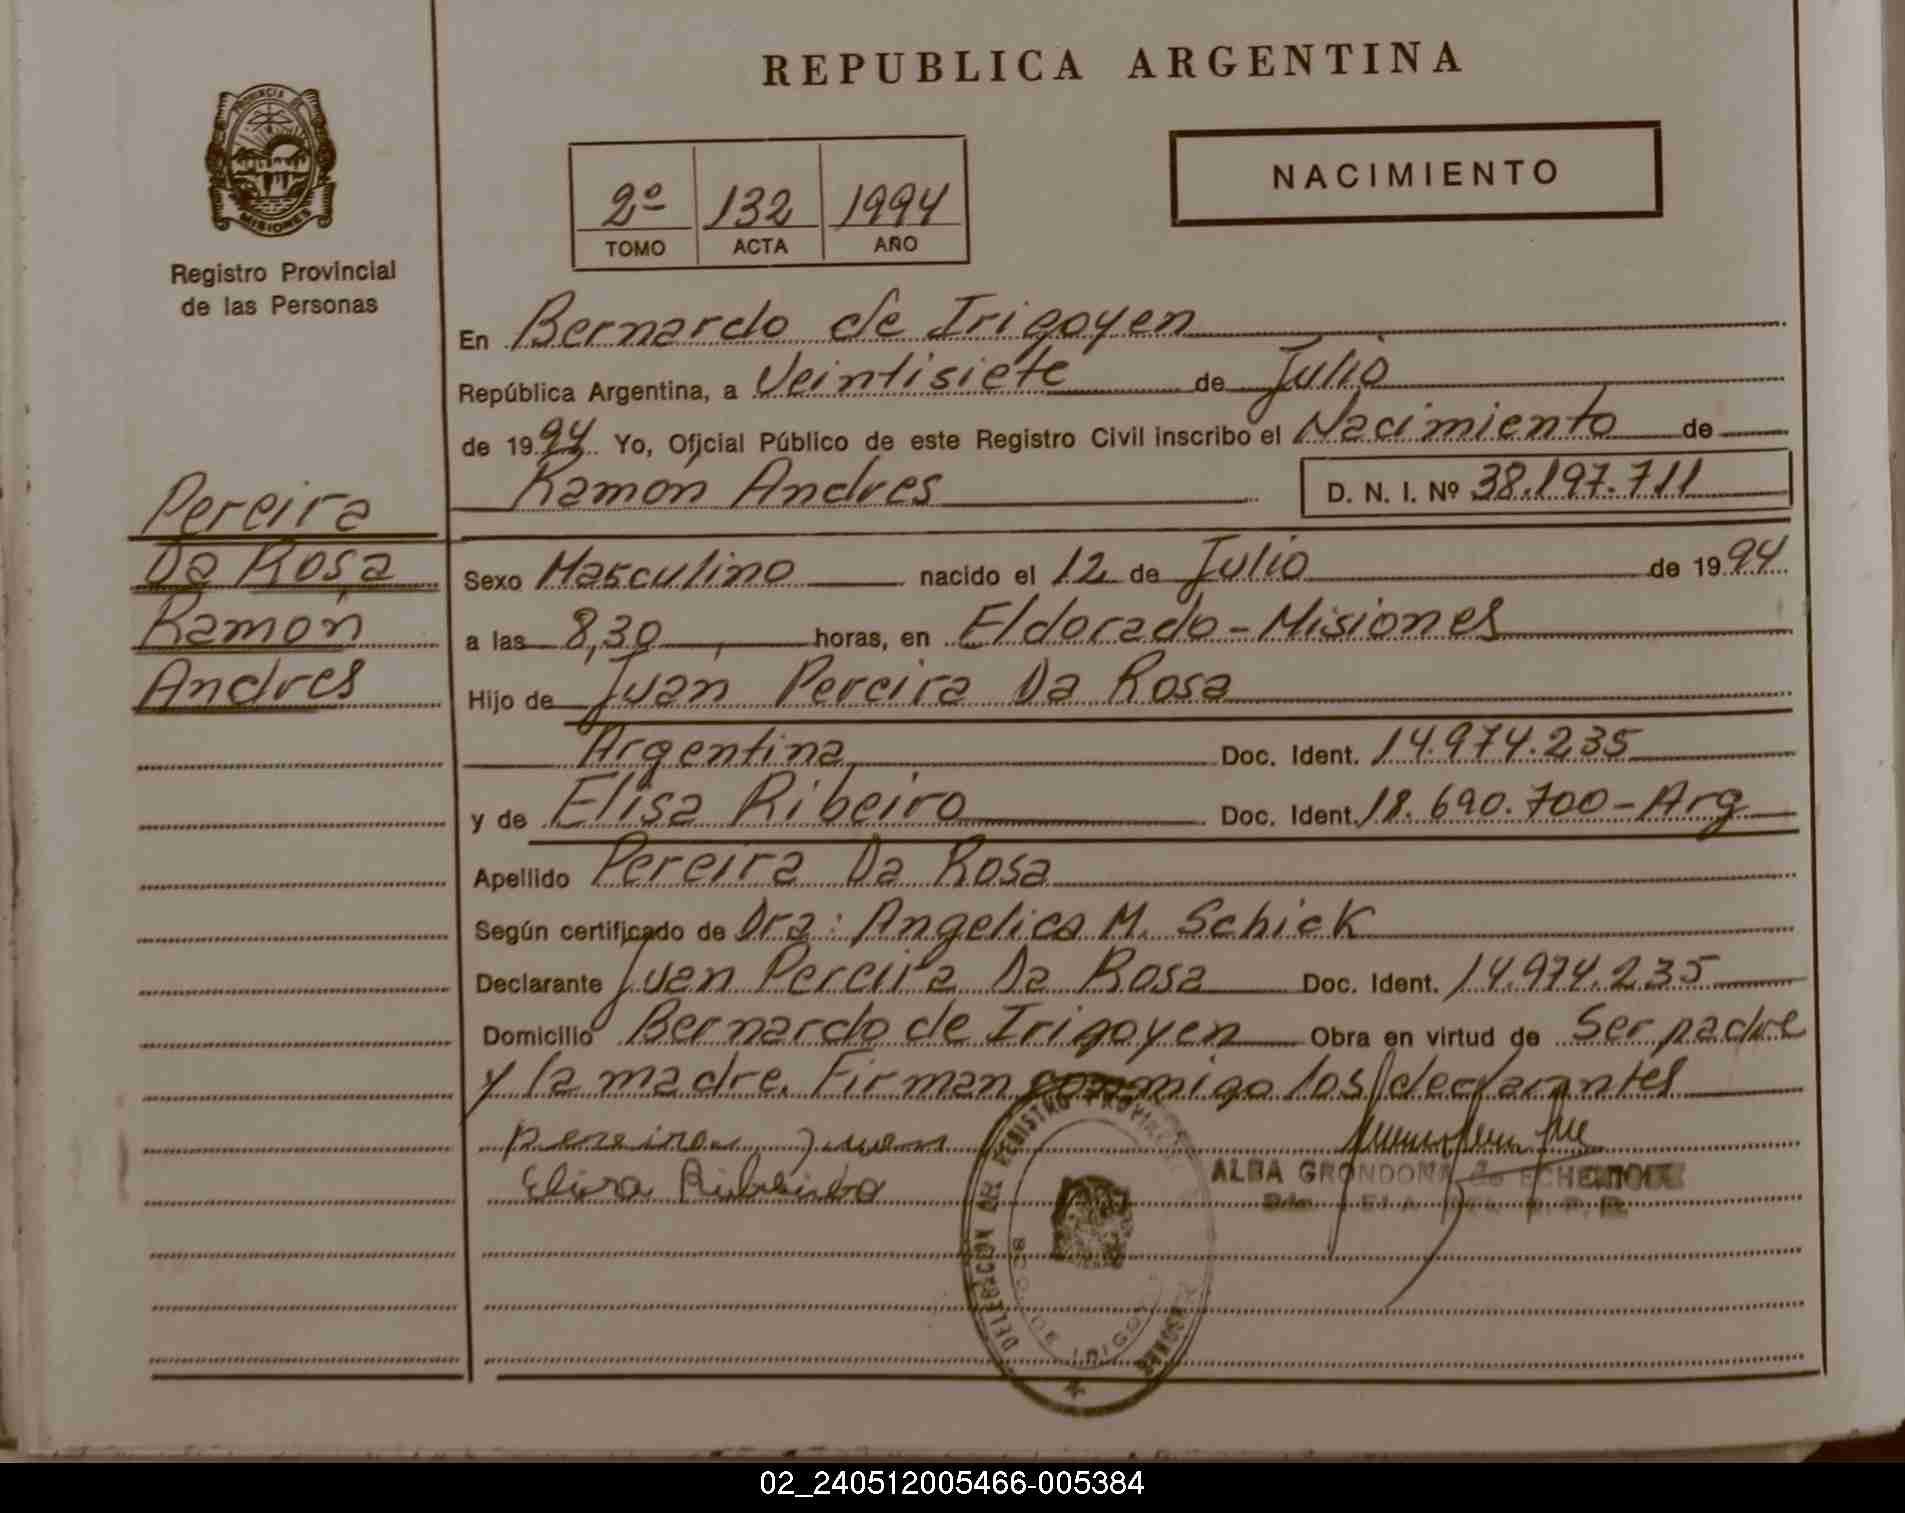 REPUBLICA ARGENTINA
PROVINCIA DE
MISIONES
Registro Provincial
de las Personas
NACIMIENTO
2º 132 1994
TOMO ACTA AÑO
En Bernardo de Irigoyen
República Argentina, a Veintisiete de Julio
de 1994 Yo, Oficial Público de este Registro Civil inscribo el Nacimiento de
Ramón Andres D. N. I. Nº 38.197.711
Pereira
Da Rosa
Ramón
Andres
Sexo Masculino nacido el 12 de Julio de 1994
a las 8,30 horas, en Eldorado - Misiones
Hijo de Juan Pereira Da Rosa
Argentina Doc. Ident. 14.974.235
y de Elisa Ribeiro Doc. Ident. 18.690.700 - Arg
Apellido Pereira Da Rosa
Según certificado de Dra: Angelica M. Schick
Declarante Juan Pereira Da Rosa Doc. Ident. 14.974.235
Domicilio Bernardo de Irigoyen Obra en virtud de Ser padre
y la madre. Firman conmigo los declarantes
pereira Juan
Elisa Ribeiro
ALBA GRONDONA de
DELEGACION DEL REGISTRO PROVINCIAL
PERSONAS
DE IRIGOY
02_240512005466-005384